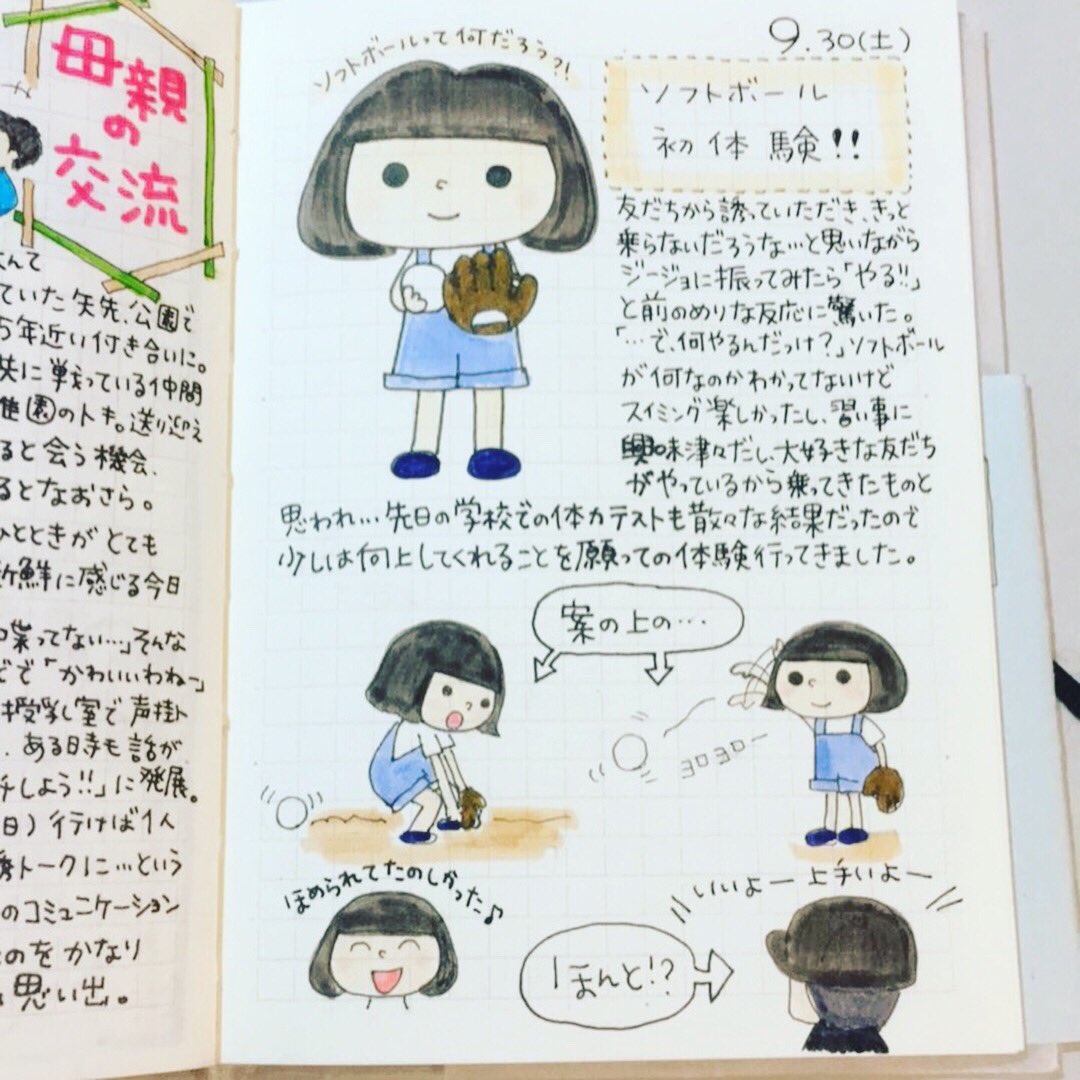 母親
の
交流
ていた矢先、公園で
5年近い付き合いに。
共に戦っている仲間
園のトキ。送り迎え
ると会う機会、
るとなおさら。
ひとときがとても
新鮮に感じる今日
ってない…」そんな
で「かわいいわねー」
授乳室で声掛
、ある時も話が
しよう!!」に発展。
日)行けば1人
トークに…という
のコミュニケーション
のをかなり
思い出。
9.30(土)
ソフトボールって何だろう?!
ソフトボール
初体験!!
友だちから誘っていただき、きっと
乗らないだろうな…と思いながら
ジージョに振ってみたら「やる!!」
と前のめりな反応に驚いた。
「…で、何やるんだっけ?」ソフトボール
が何なのかわかってないけど
スイミング楽しかったし、習い事に
興味津々だし、大好きな友だち
がやっているから乗ってきたものと
思われ…先日の学校での体力テストも散々な結果だったので
少しは向上してくれることを願っての体験行ってきました。
案の上の…
ヨロヨロー
ほめられてたのしかった♪
いいよー上手いよー
ほんと!?